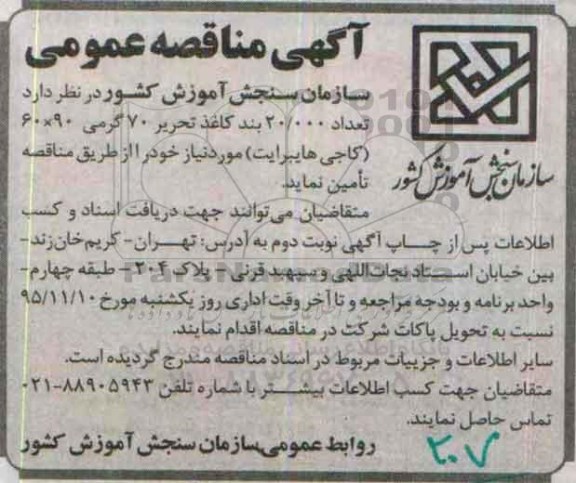 آگهی مناقصه عمومی
سازمان سنجش آموزش کشور در نظر دارد
تعداد ۲۰/۰۰۰ بند کاغذ تحریر ۷۰ گرمی ۹۰×۶۰
(کاجی هایبرایت) موردنیاز خود را از طریق مناقصه
تأمین نماید.
سازمان سنجش آموزش کشور
متقاضیان می‌توانند جهت دریافت اسناد و کسب
اطلاعات پس از چاپ آگهی نوبت دوم به آدرس: تهران- کریم‌خان‌زند-
بین خیابان استاد نجات‌اللهی و سپهبد قرنی - پلاک ۲۰۴ - طبقه چهارم-
واحد برنامه و بودجه مراجعه و تا آخر وقت اداری روز یکشنبه مورخ ۹۵/۱۱/۱۰
نسبت به تحویل پاکات شرکت در مناقصه اقدام نمایند.
سایر اطلاعات و جزییات مربوط در اسناد مناقصه مندرج گردیده است.
متقاضیان جهت کسب اطلاعات بیشتر با شماره تلفن ۸۸۹۰۵۹۴۳-۰۲۱
تماس حاصل نمایند.
روابط عمومی سازمان سنجش آموزش کشور
۲۰۷
ParsNamadData